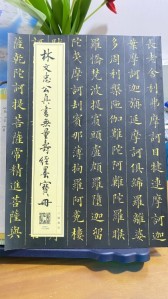 長老舍利弗摩訶目乾連摩訶
葉摩訶迦旃延摩訶俱絺羅離婆
多周利槃陁伽難陁阿難陁羅睺
羅憍梵波提賓頭盧頗羅墮迦留
陁夷摩訶劫賓那薄拘羅阿㝹樓
林文忠公真書無量壽經墨寶冊
薩乾陁訶提菩薩常精進菩薩與